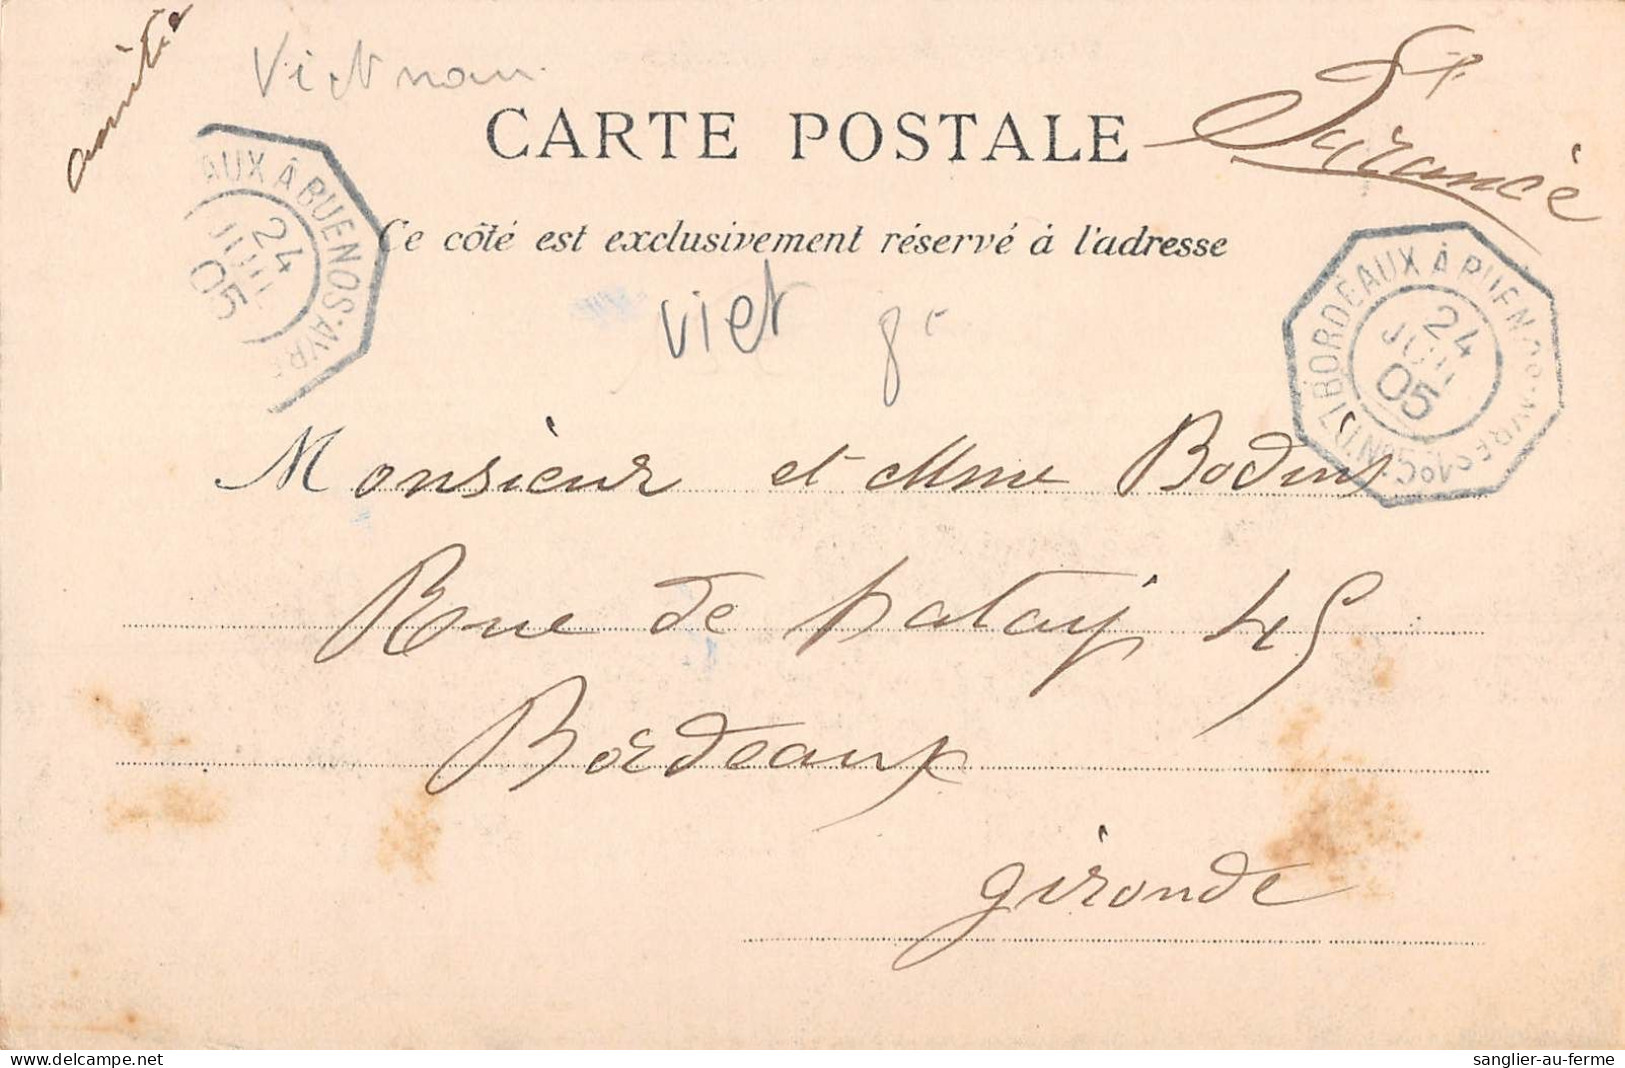 amitié
Vietnam
CARTE POSTALE
France
Ce côté est exclusivement réservé à l'adresse
AUX À BUENOS-AYRE
24
JUIL
05
BORDEAUX À BUENOS-AYRES 1º
24
JUIL
05
viet
8-
Monsieur et Mme Bodin
Rue de Patay 45
Bordeaux
Gironde
www.delcampe.net
sanglier-au-ferme